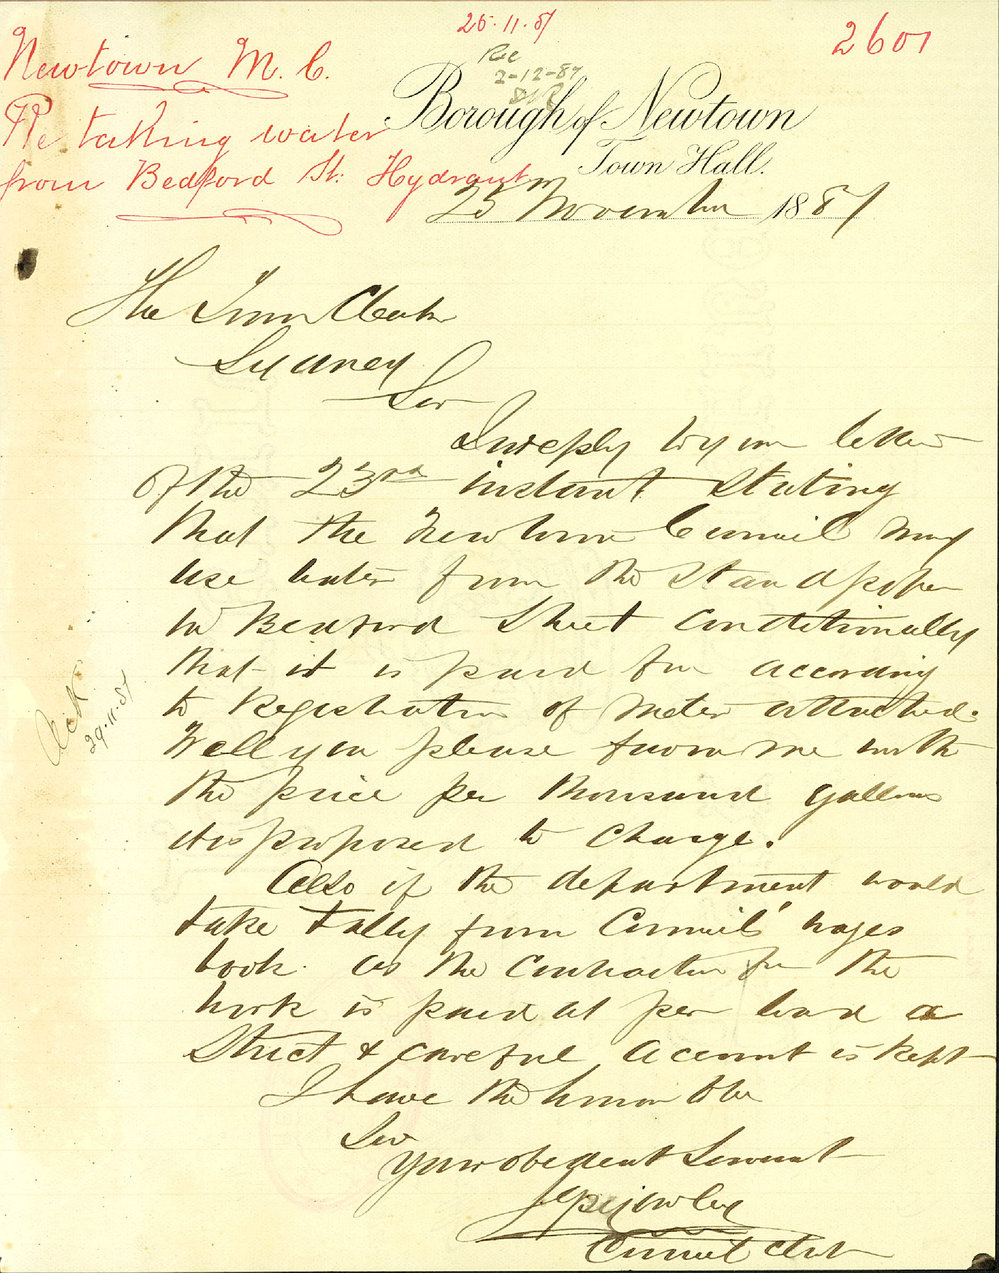 26.11.87
2601
Newtown M. C.
Re taking water
from Bedford St. Hydrant
Rec
2-12-87
Borough of Newtown
Town Hall.
25 November 1887
The Town Clerk
Sydney
Sir
In reply to your letter
of the 23rd instant stating
that the Newtown Council may
use water from the Standpipe
in Bedford Street Conditionally
that it is paid for according
to Registration of Meter attached.
Will you please favor me with
the price per thousand gallons
it is proposed to charge.
Also if the department would
take tally from Council's wages
book. as the Contractor for the
work is paid at per load a
Strict & careful account is kept
I have the honor to be
Sir
Your obedient Servant
Council Clerk
Ack
29.11.87